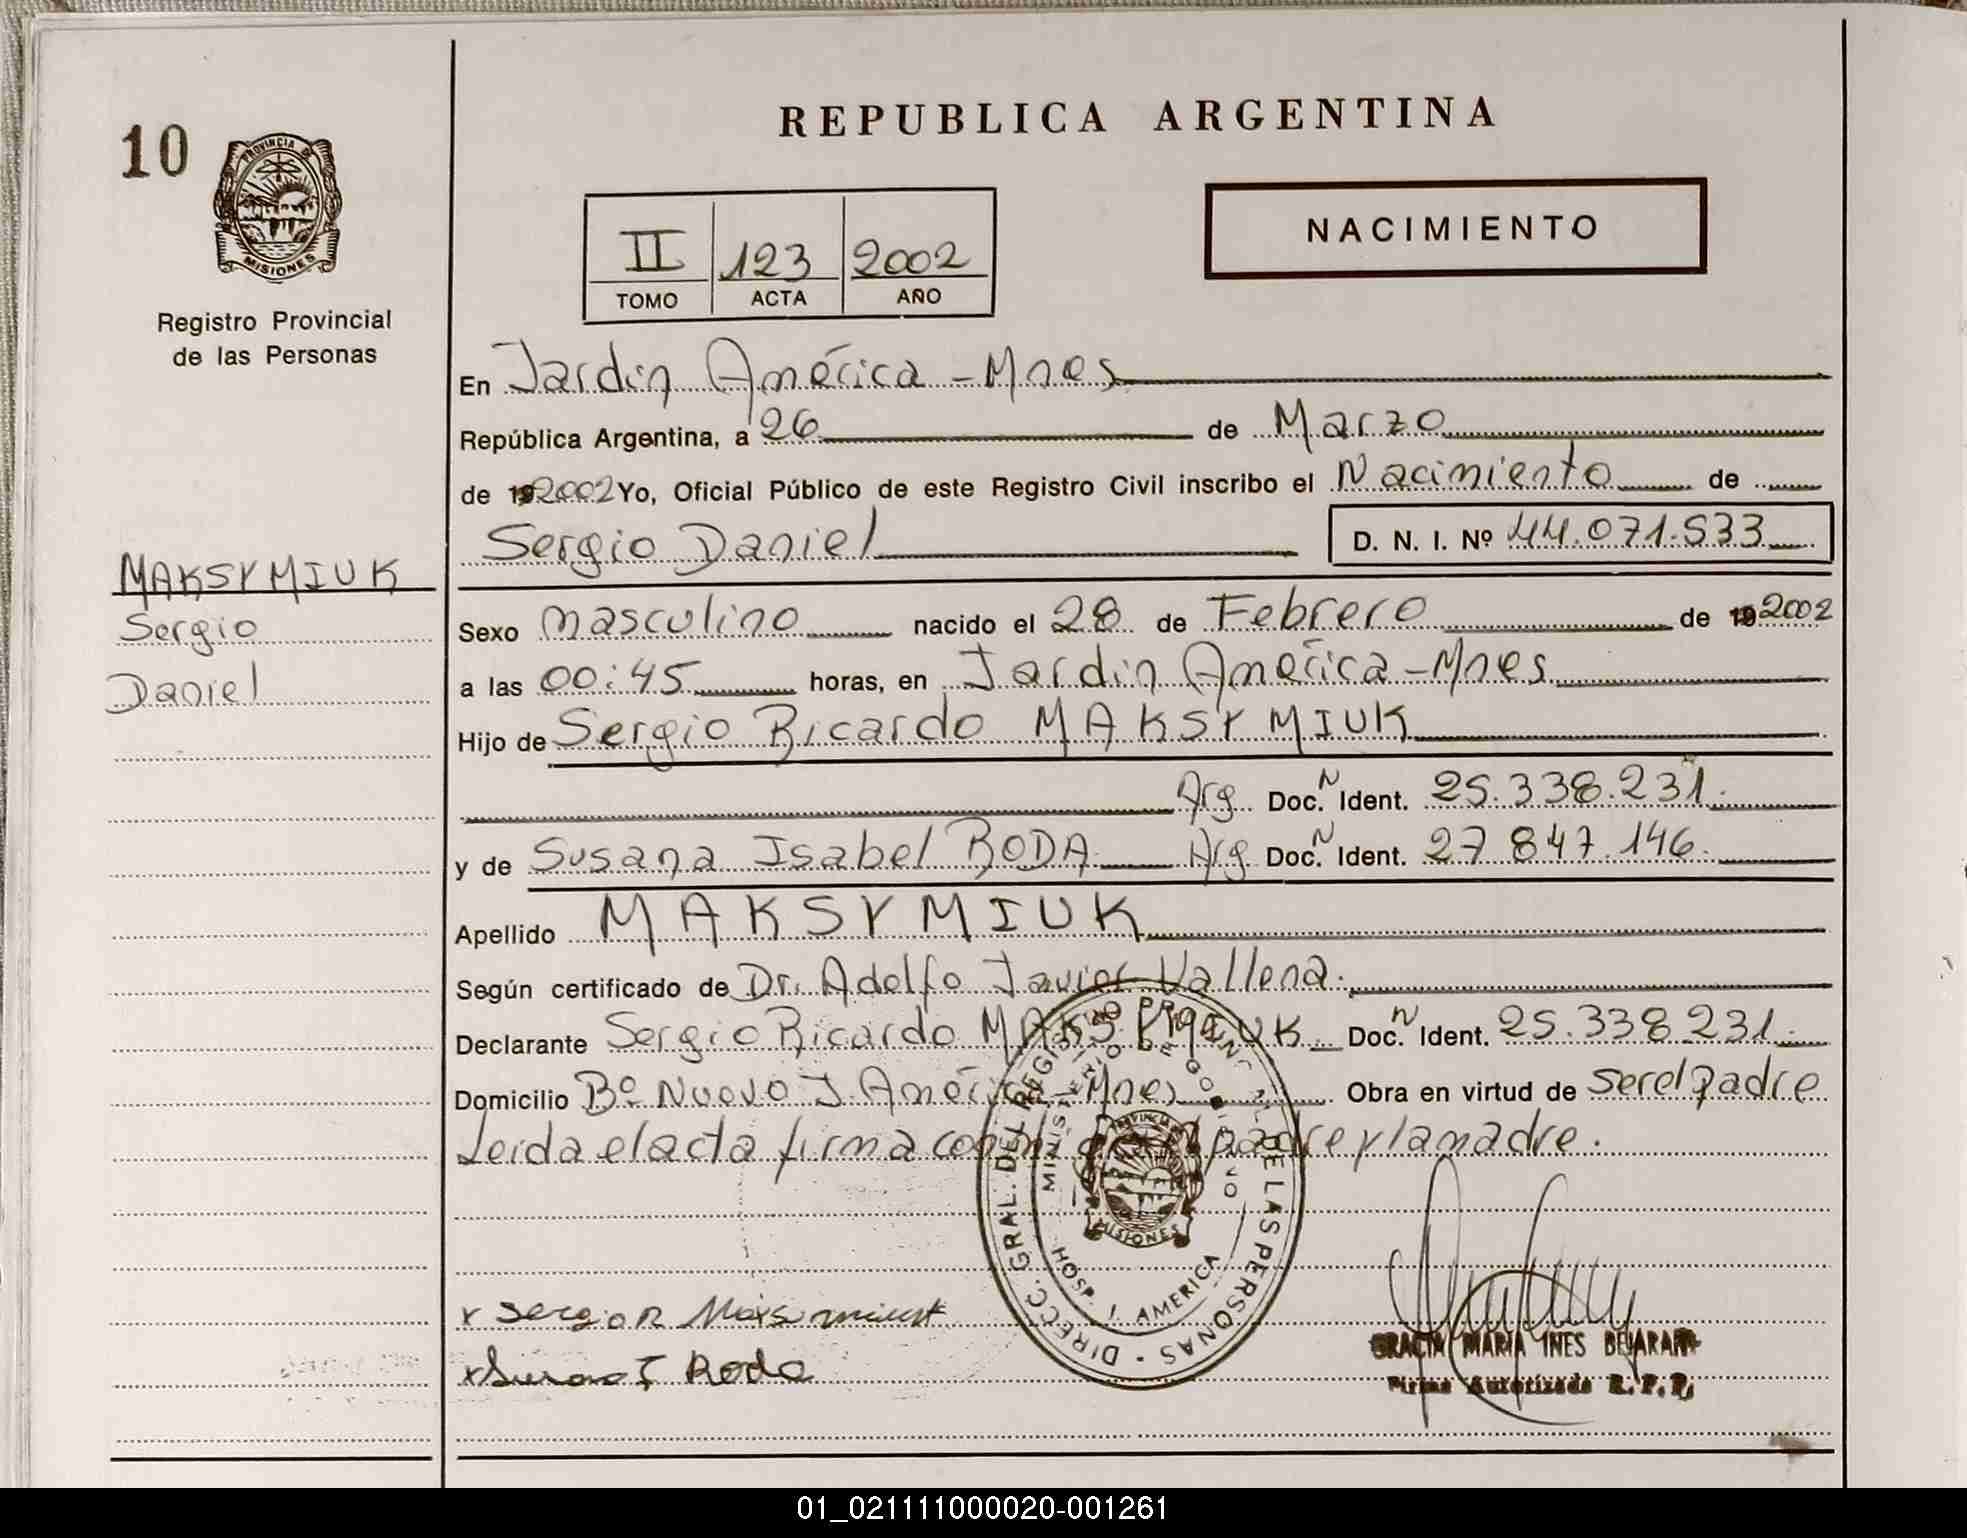 REPUBLICA ARGENTINA
10
PROVINCIA DE
MISIONES
Registro Provincial
de las Personas
NACIMIENTO
II 123 2002
TOMO ACTA AÑO
En Jardín América - Mnes
República Argentina, a 26 de Marzo
de 192002 Yo, Oficial Público de este Registro Civil inscribo el Nacimiento de
Sergio Daniel D. N. I. Nº 44.071.533
MAKSYMIUK
Sergio
Daniel
Sexo masculino nacido el 28 de Febrero de 192002
a las 00:45 horas, en Jardín América - Mnes
Hijo de Sergio Ricardo MAKSYMIUK
Arg. Doc. N Ident. 25.338.231.
y de Susana Isabel RODA Arg Doc. N Ident. 27 847.146.
Apellido MAKSYMIUK
Según certificado de Dr. Adolfo Javier Vallena.
Declarante Sergio Ricardo MAKSYMIUK Doc. N Ident. 25.338.231.
Domicilio Bº Nuevo J. América - Mnes Obra en virtud de ser el padre
Leida el acta firma padre y la madre.
DIRECC. GRAL. DEL REGISTRO PROVINCIAL DE LAS PERSONAS
MINISTERIO DE GOBIERNO
MISIONES
HOSP. J. AMERICA
x Sergio R
x Roda
GRACIA MARIA INES BEJARANO
Firma Autorizada R. P. P.
01_021111000020-001261